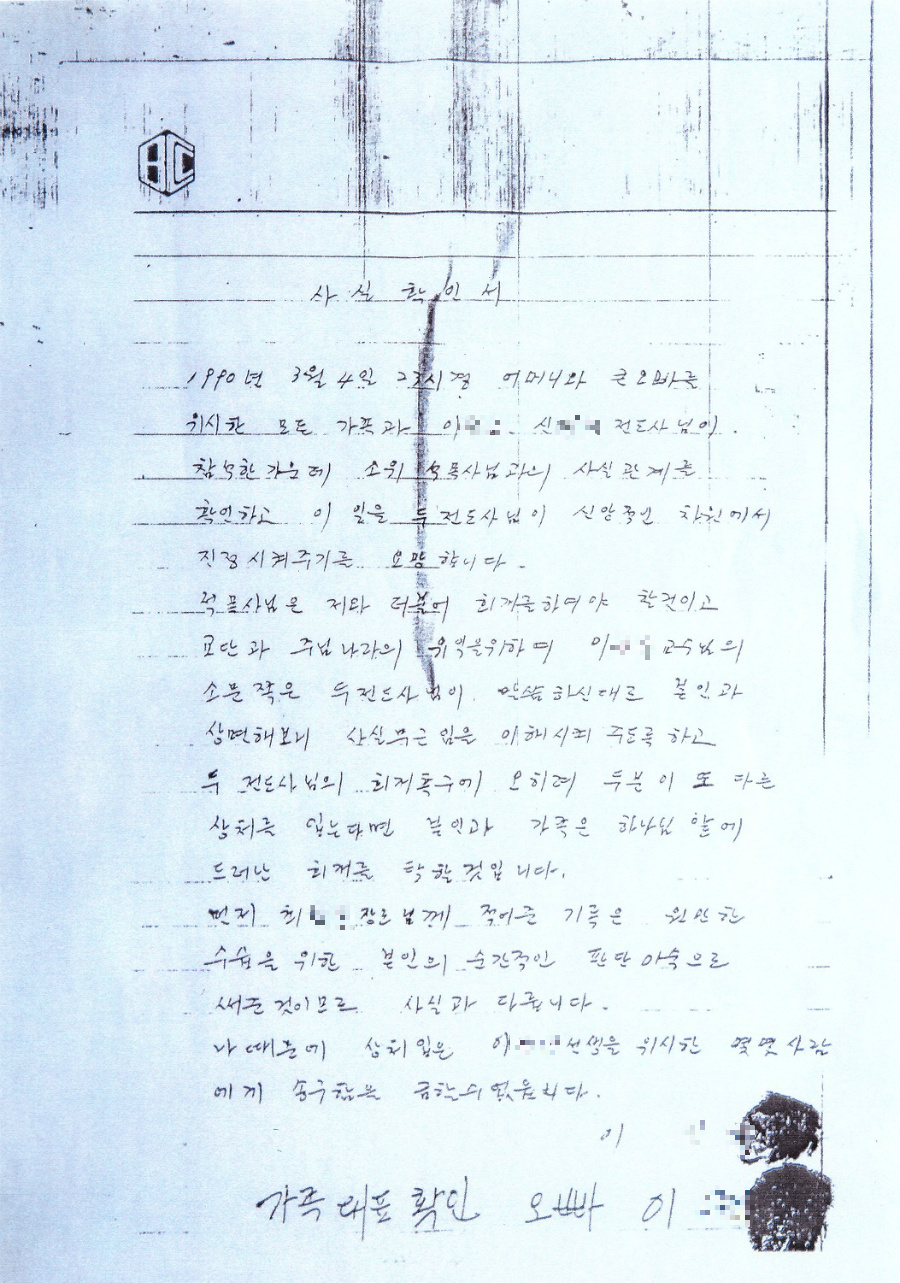 사 실 확 인 서
1990년 3월 4일 23시경 어머니와 큰오빠를
위시한 모든 가족과 이 신 전도사님이
참석한 가운데 소위 목사님과의 사실관계를
확인하고 이 일을 두 전도사님이 신앙적인 차원에서
진정시켜주기를 요망합니다.
목사님은 저와 더불어 회개를하여야 할것이고
교단과 주님나라의 유익을위하여 이 교수님의
소문 두전도사님이 말씀하신대로 본인과
상면해보니 사실무근임을 이해시켜 주도록 하고
두 전도사님의 회개촉구에 오히려 두분이 또 다른
상처를 입는다면 본인과 가족은 하나님 앞에
드러난 회개를 할것입니다.
먼저 최 장로님께 적어준 기록은 원만한
수습을 위한 본인의 순간적인 판단 으로
써준것이므로 사실과 다릅니다.
나 때문에 상처입은 이 선생을 위시한 몇몇사람
에게 송구함을 금할수없읍니다.
이
가족대표 확인 오빠 이